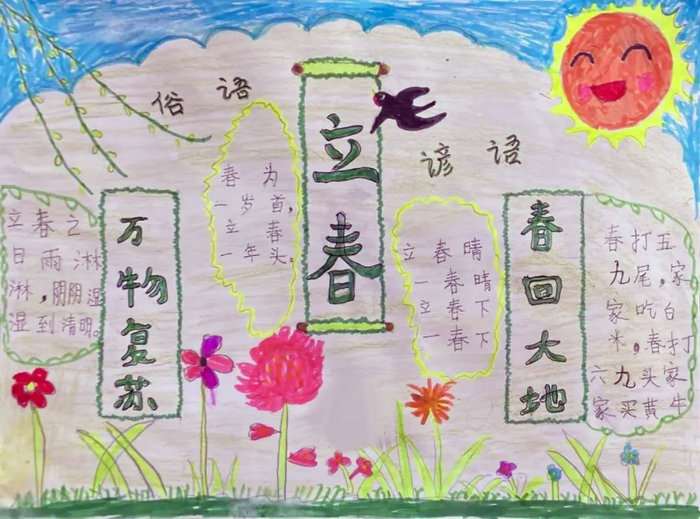 俗语
立春
谚语
立春之
日雨淋
淋，阴阴湿
湿到清明。
万物复苏
春为
一岁首，
立春
一年头。
立春晴
一春晴
立春下
一春下
春回大地
春打五
九尾，家
家吃白
米，春打
六九头家
家买黄牛